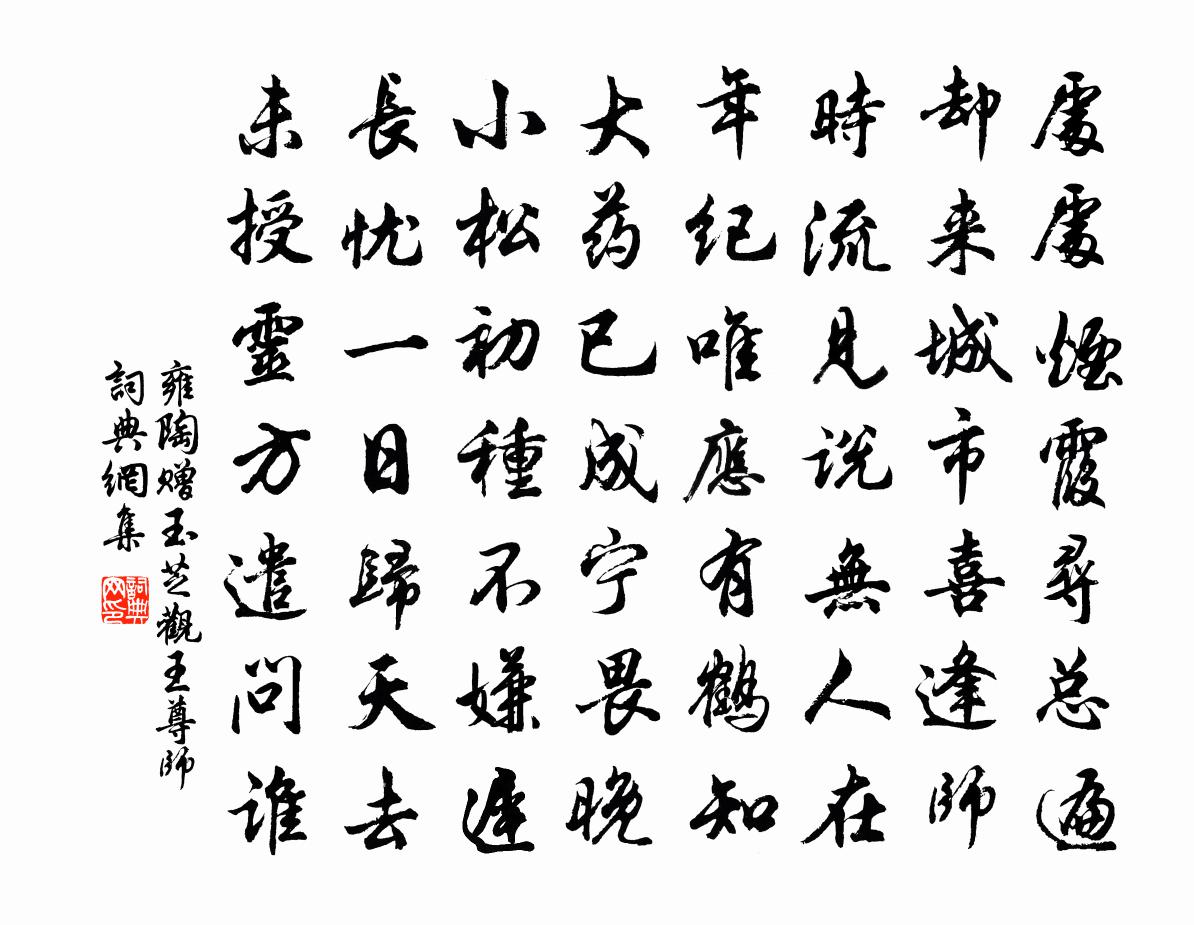 處處煙霞尋总遍
却来城市喜逢師
時流見説無人在
年纪唯應有鹤知
大药已成宁畏晚
小松初種不嫌遲
長忧一日歸天去
未授靈方遣問谁
雍陶赠玉芝觀王尊師
詞典網集
詞典網印